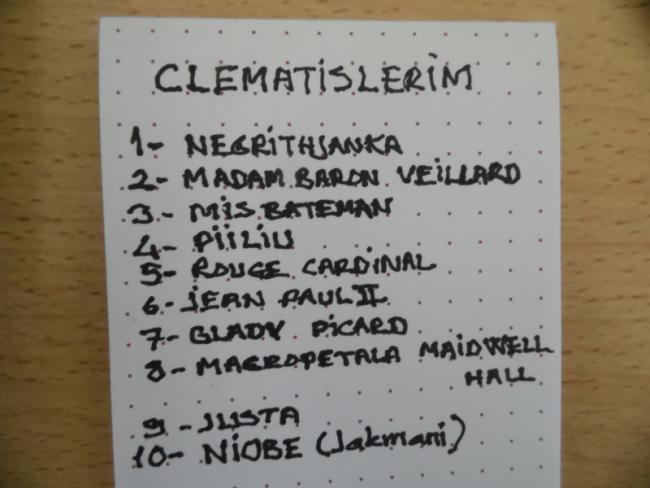 CLEMATİSLERİM
1- NEGRİTHJANKA
2- MADAM BARON VEİLLARD
3- MİS BATEMAN
4- PİİLİU
5- ROUGE CARDİNAL
6- JEAN PAUL II
7- GLADY PİCARD
8- MACROPETALA MAİDWELL
HALL
9- JUSTA
10- NİOBE (Jakmani)